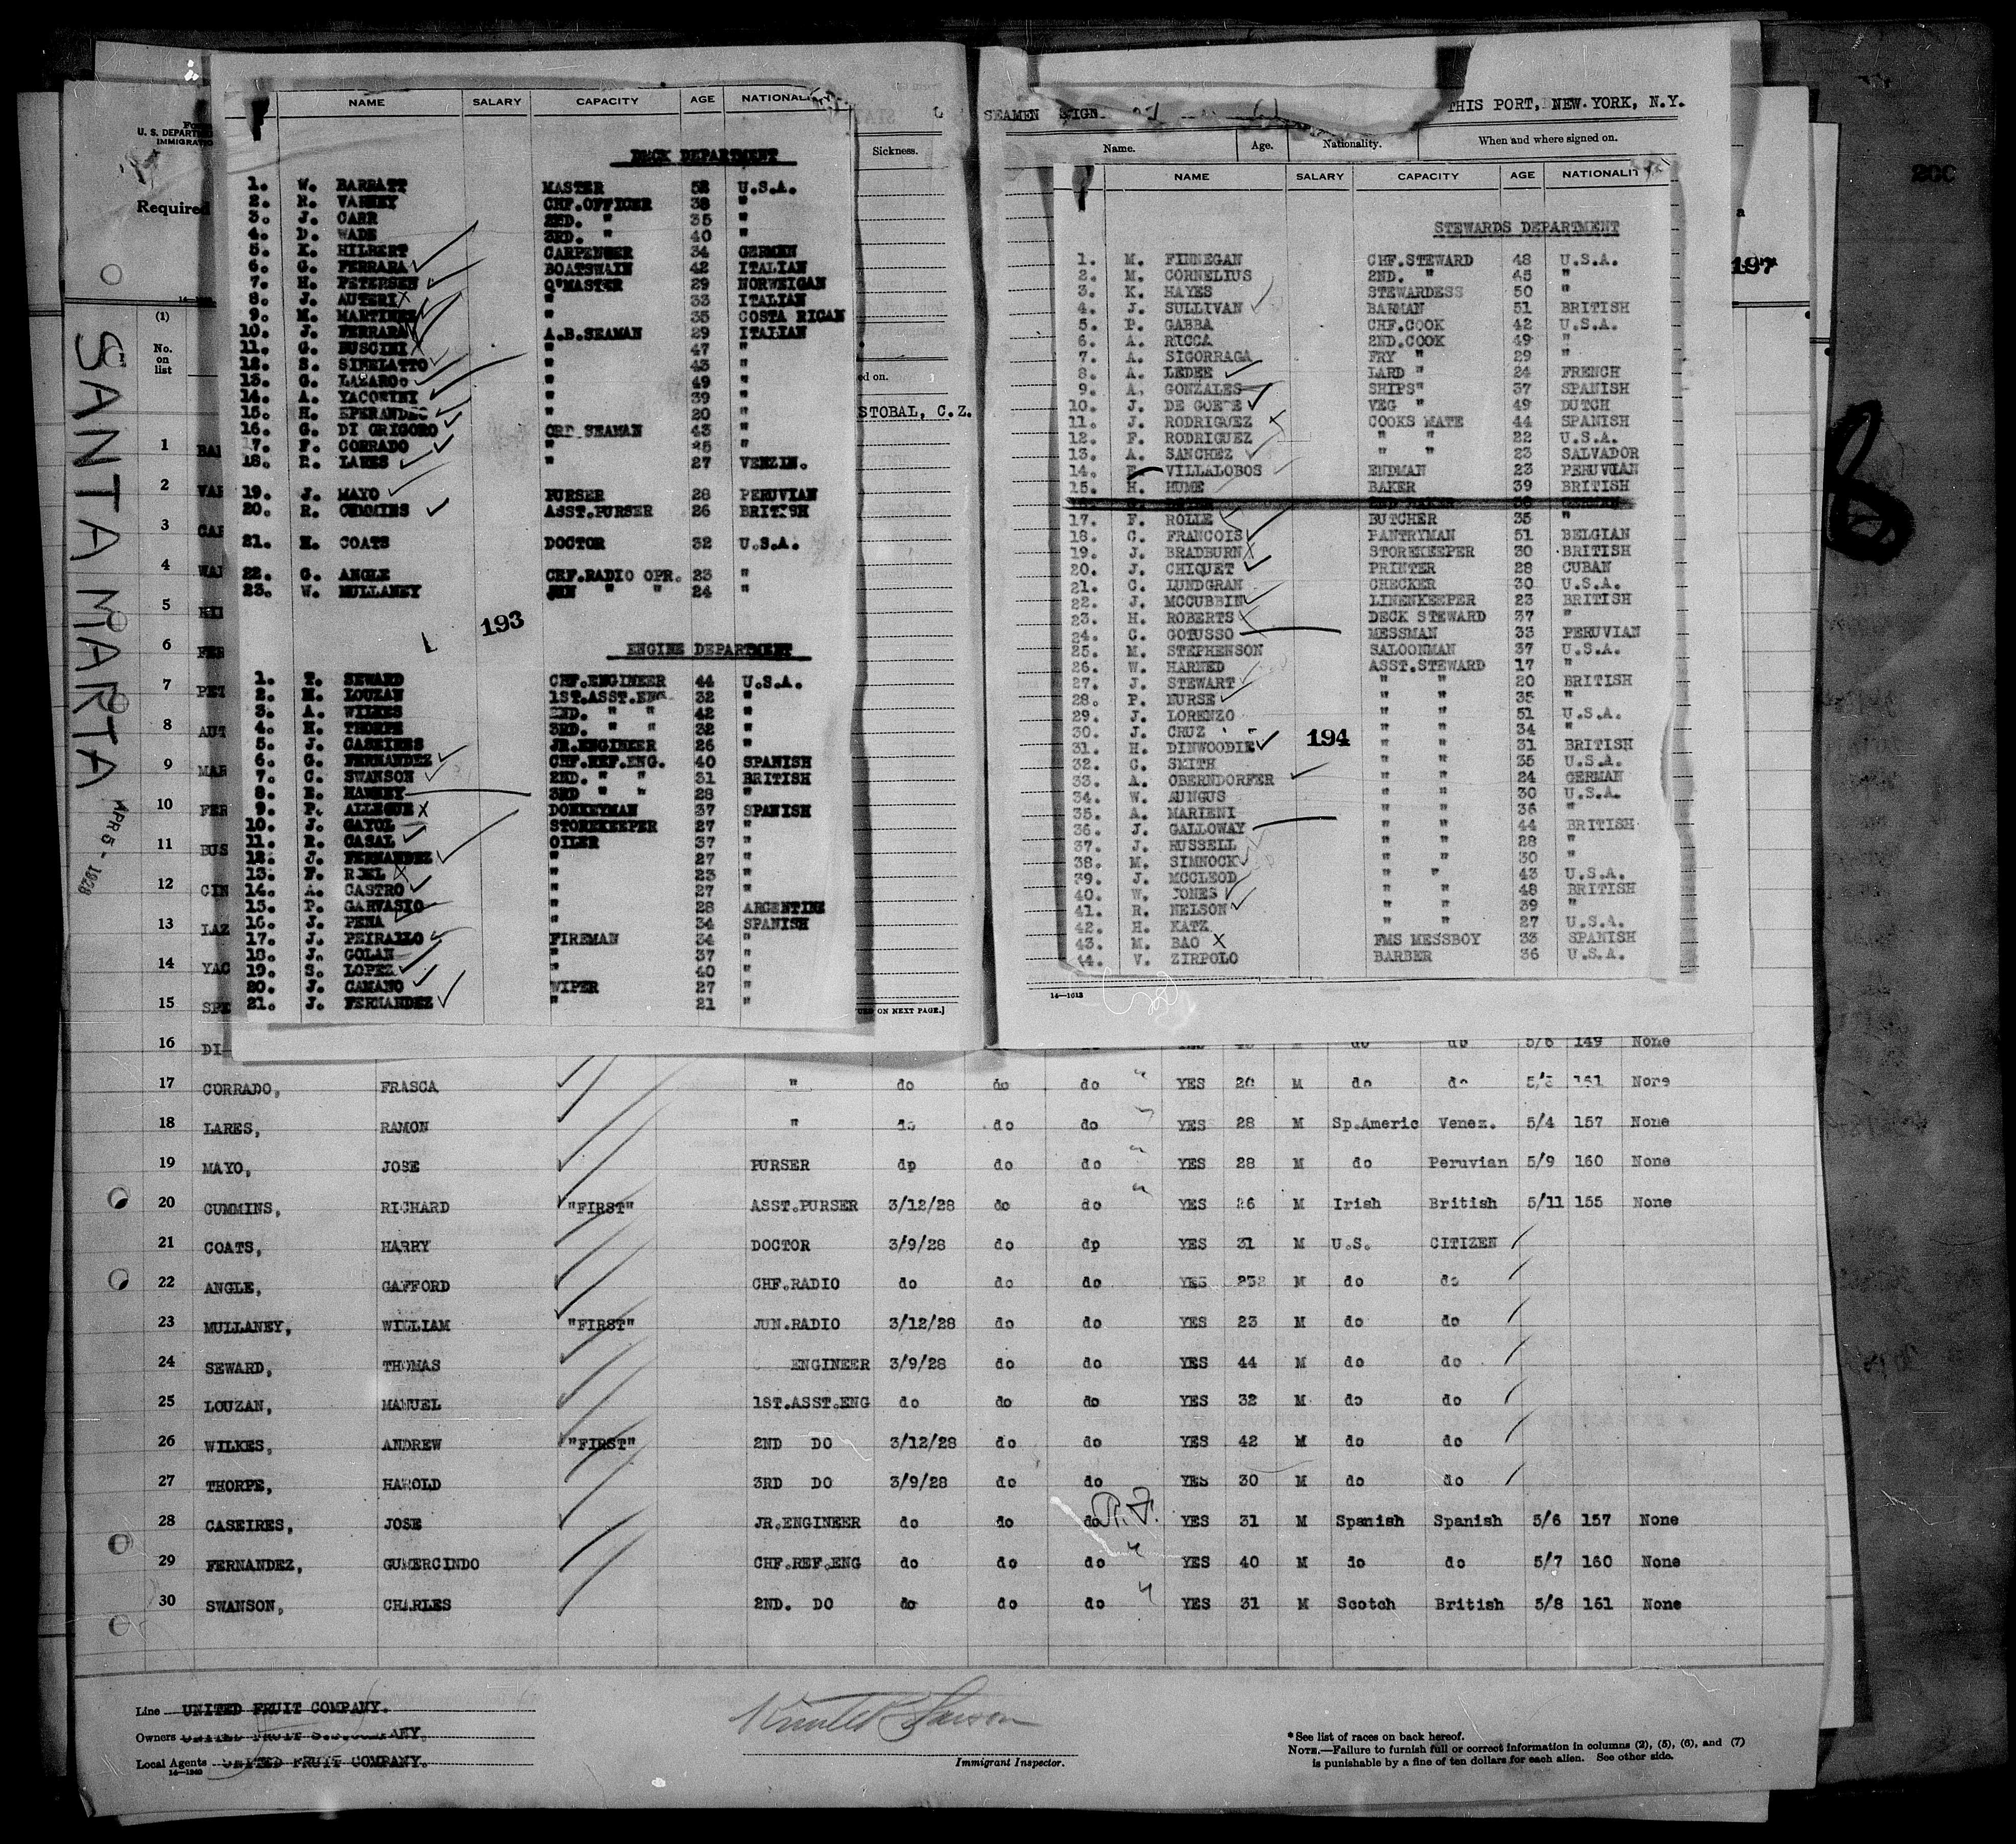 U. S. DEPARTM
IMMIGRATIO
Required
SANTA MARTA
APR 5 - 1928
(1)
No.
on
list
NAME SALARY CAPACITY AGE NATIONALI
DECK DEPARTMENT
1. W. BARRATT MASTER 52 U.S.A.
2. R. VARNEY CHF.OFFICER 38 "
3. J. CARR 2ND. " 35 "
4. D. WADE 3RD. " 40 "
5. K. HILBERT CARPENGER 34 GERMEN
6. G. FERRARA BOATSWAIN 42 ITALIAN
7. H. PETERSEN Q'MASTER 29 NORWEIGAN
8. J. AUTERI " 33 ITALIAN
9. M. MARTINEZ " 35 COSTA RICAN
10. J. FERRARA A.B.SEAMAN 29 ITALIAN
11. G. BUSCINI " 47 "
12. S. " 43 "
13. G. LAZARGO " 49 "
14. A. YACOVINI " 39 "
15. H. " 20 "
16. G. DI GRIGORO ORD SEAMAN 43 "
17. F. CORRADO " 25 "
18. R. LARES " 27 VENZIN.
19. J. MAYO PURSER 28 PERUVIAN
20. R. CUMMINS ASST.PURSER 26 BRITISH
21. H. COATS DOCTOR 32 U.S.A.
22. G. ANGLE CHF.RADIO OPR. 23 "
23. W. MULLANEY JUN " " 24 "
193
ENGINE DEPARTMENT
1. T. SEWARD CHF.ENGINEER 44 U.S.A.
2. M. LOUZAN 1ST.ASST.ENG 32 "
3. A. WILKES 2ND. " " 42 "
4. H. THORPE 3RD. " " 32 "
5. J. CASEIRES JR.ENGINEER 26 "
6. G. FERNANDEZ CHF.REF.ENG. 40 SPANISH
7. C. SWANSON 2ND. " " 31 BRITISH
8. E. 3RD " " 28 "
9. P. ALLEGUE DONKEYMAN 37 SPANISH
10. J. GAYOL STOREKEEPER 27 "
11. R. CASAL OILER 37 "
12. J. FERNANDEZ " 27 "
13. F. " 23 "
14. A. CASTRO " 27 "
15. P. GARVASIO " 28 ARGENTINE
16. J. PENA " 34 SPANISH
17. J. PEIRALLO FIREMAN 34 "
18. J. GOLAN " 37 "
19. S. LOPEZ " 40 "
20. J. CAMANO WIPER 27 "
21. J. FERNANDEZ " 21 "
Sickness.
ed on.
STOBAL, C.Z.
UED ON NEXT PAGE.]
SEAMEN SIGN
THIS PORT, NEW YORK, N.Y.
Name. Age. Nationality. When and where signed on.
NAME SALARY CAPACITY AGE NATIONALIT
STEWARDS DEPARTMENT
1. M. FINNEGAN CHF.STEWARD 48 U.S.A.
2. M. CORNELIUS 2ND. " 45 "
3. K. HAYES STEWARDESS 50 "
4. J. SULLIVAN BARMAN 51 BRITISH
5. P. GABBA CHF.COOK 42 U.S.A.
6. A. RICCA 2ND.COOK 49 "
7. A. SIGORRAGA FRY " 29 "
8. A. LEDEE LARD " 24 FRENCH
9. A. GONZALES SHIPS" 37 SPANISH
10. J. DE GOETE VEG " 49 DUTCH
11. J. RODRIGUEZ COOKS MATE 44 SPANISH
12. F. RODRIGUEZ " " 22 U.S.A.
13. A. SANCHEZ " " 23 SALVADOR
14. VILLALOBOS ENDMAN 23 PERUVIAN
15. H. HUME BAKER 39 BRITISH
17. F. ROLLE BUTCHER 35 "
18. C. FRANCOIS PANTRYMAN 51 BELGIAN
19. J. BRADBURN STOREKEEPER 30 BRITISH
20. J. CHIQUET PRINTER 28 CUBAN
21. C. LUNDGRAN CHECKER 30 U.S.A.
22. J. MCCUBBIN LINENKEEPER 23 BRITISH
23. H. ROBERTS DECK STEWARD 37 "
24. C. GOTUSSO MESSMAN 33 PERUVIAN
25. M. STEPHENSON SALOONMAN 37 U.S.A.
26. W. HARNED ASST.STEWARD 17 "
27. J. STEWART " " 20 BRITISH
28. P. NURSE " " 35 "
29. J. LORENZO " " 51 U.S.A.
30. J. CRUZ " " 34 "
31. H. DINWOODIE " " 31 BRITISH
32. C. SMITH " " 35 U.S.A.
33. A. OBERNDORFER " " 24 GERMAN
34. W. AUNGUS " " 30 U.S.A.
35. A. MARIENI " " 36 "
36. J. GALLOWAY " " 44 BRITISH
37. J. RUSSELL " " 28 "
38. M. SIMNOCK " " 30 "
39. J. MCCLEOD " " 43 U.S.A.
40. W. JONES " " 48 BRITISH
41. R. NELSON " " 39 "
42. H. KATZ " " 27 U.S.A.
43. M. BAO FMS MESSBOY 33 SPANISH
44. V. ZIRPOLO BARBER 36 U.S.A.
194
14—1013
197
200
1 BAR
2 VAR
3 CAR
4 WAD
5 HIL
6 FER
7 PET
8 AUT
9 MAR
10 FER
11 BUS
12 CIN
13 LAZ
14 YAC
15 SPE
16 DI do do 5/6 149 None
17 CORRADO, FRASCA " do do do YES 26 M do do 5/5 161 None
18 LARES, RAMON " do do do YES 28 M Sp.Americ Venez. 5/4 157 None
19 MAYO, JOSE PURSER dp do do YES 28 M do Peruvian 5/9 160 None
20 CUMMINS, RICHARD "FIRST" ASST.PURSER 3/12/28 do do YES 26 M Irish British 5/11 155 None
21 COATS, HARRY DOCTOR 3/9/28 do dp YES 31 M U.S. CITIZEN
22 ANGLE, GAFFORD CHF.RADIO do do do YES 232 M do do
23 MULLANEY, WILLIAM "FIRST" JUN.RADIO 3/12/28 do do YES 23 M do do
24 SEWARD, THOMAS ENGINEER 3/9/28 do do YES 44 M do do
25 LOUZAN, MANUEL 1ST.ASST.ENG do do do YES 32 M do do
26 WILKES, ANDREW "FIRST" 2ND DO 3/12/28 do do YES 42 M do do
27 THORPE, HAROLD 3RD DO 3/9/28 do do YES 30 M do do
28 CASEIRES, JOSE JR.ENGINEER do do do YES 31 M Spanish Spanish 5/6 157 None
29 FERNANDEZ, GUMERCINDO CHF.REF.ENG do do do YES 40 M do do 5/7 160 None
30 SWANSON, CHARLES 2ND. DO do do do YES 31 M Scotch British 5/8 161 None
Line UNITED FRUIT COMPANY.
Owners UNITED FRUIT S.S.COMPANY.
Local Agents UNITED FRUIT COMPANY.
Immigrant Inspector.
* See list of races on back hereof.
NOTE.—Failure to furnish full or correct information in columns (2), (5), (6), and (7)
is punishable by a fine of ten dollars for each alien. See other side.